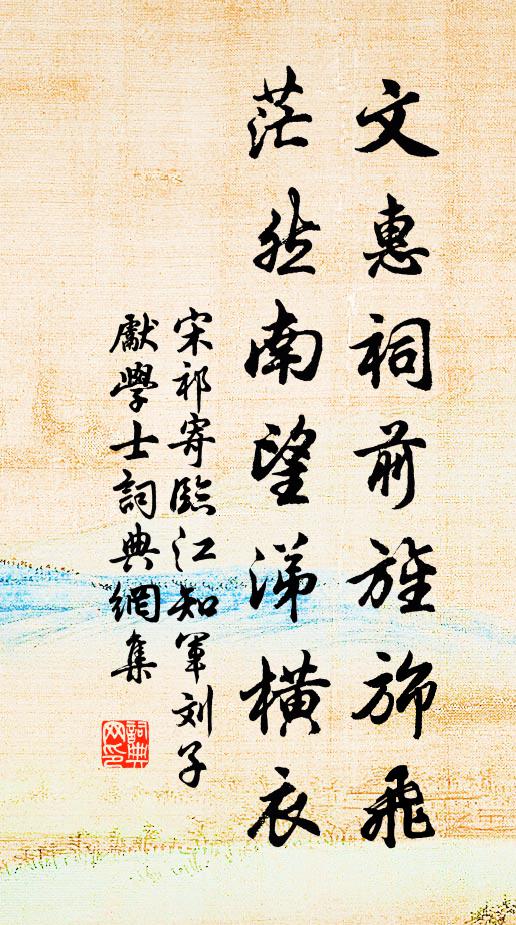 文惠祠前旌旆飛
茫然南望涕橫衣
宋祁寄臨江知軍刘子
獻學士詞典網集
詞典
网印